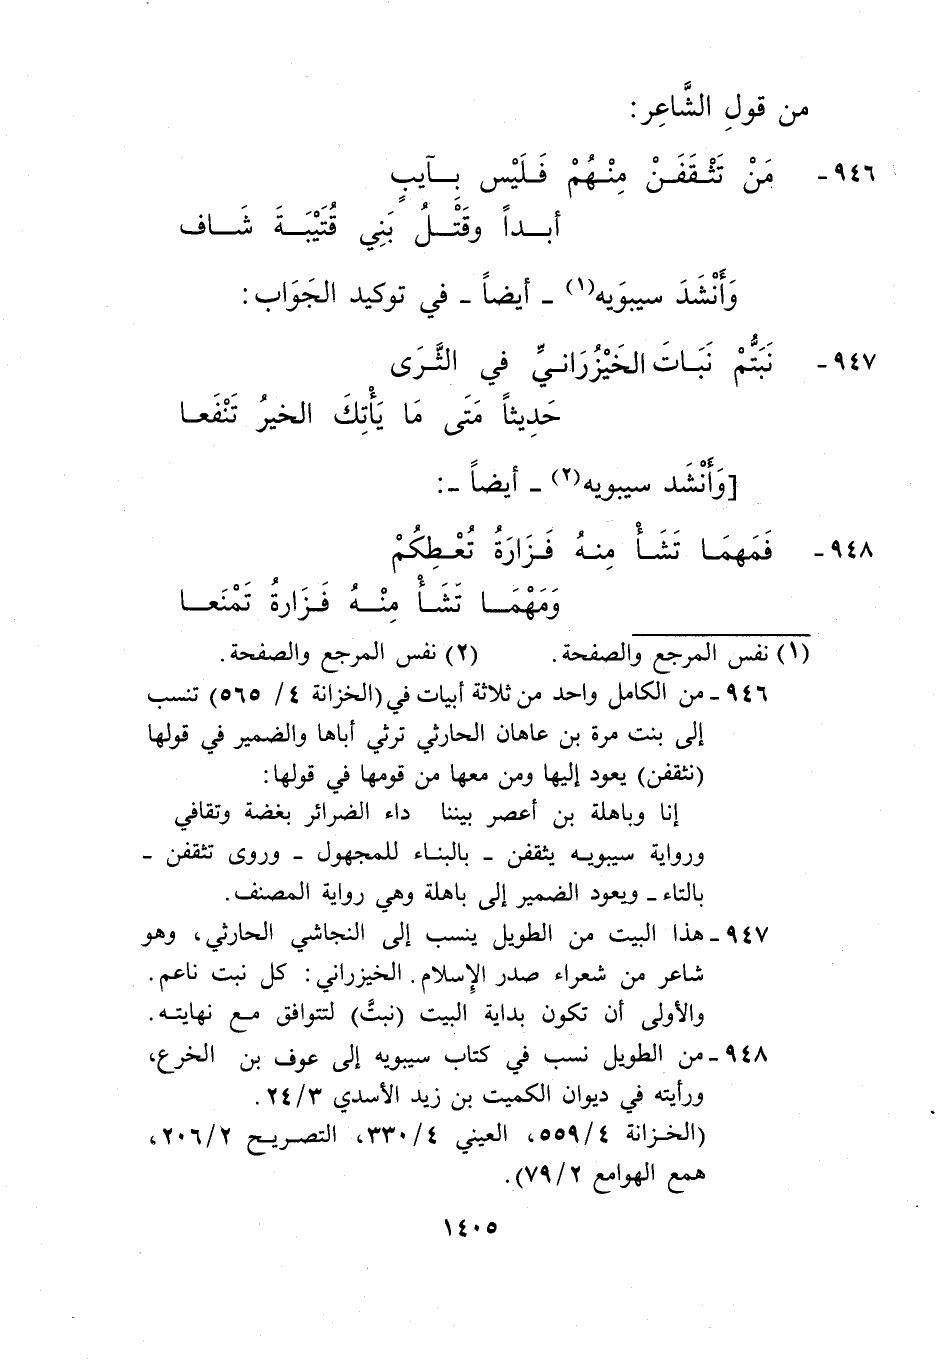 من قولِ الشَّاعِرِ:
٩٤٦ـ مَنْ تَثْـقَفَـنْ مِنْـهُمْ فَـلَيْس بِـآيِبٍ
أبـداً وقَتْـلُ بَنِي قُتَيْبَـةَ شَـاف
وَأَنْشَدَ سيبوَيه(١) ـ أيضاً ـ في توكيد الجَوَاب:
٩٤٧ـ نَبَتُّمْ نَبَـاتَ الخَيْزُرَانـيِّ في الثَّرَى
حَدِيثاً مَتَى مَا يَأْتِكَ الخيرُ تَنْفَعـا
[وَأَنْشَد سيبويه(٢) ـ أيضاً ـ:
٩٤٨ـ فَمَهمَـا تَشَـأْ مِنـهُ فَـزَارَةُ تُعْـطِكُمْ
وَمَهْمَـا تَشَـأْ مِنْـهُ فَـزارةُ تَمْنَعـا
(١) نفس المرجع والصفحة. (٢) نفس المرجع والصفحة.
٩٤٦ـ من الكامل واحد من ثلاثة أبيات في (الخزانة ٤/ ٥٦٥) تنسب
إلى بنت مرة بن عاهان الحارثي ترثي أباها والضمير في قولها
(نثقفن) يعود إليها ومن معها من قومها في قولها:
إنا وباهلة بن أعصر بيننا داء الضرائر بغضة وتقافي
ورواية سيبويـه يثقفن ـ بالبنـاء للمجهول ـ وروى تثقفن ـ
بالتاء ـ ويعود الضمير إلى باهلة وهي رواية المصنف.
٩٤٧ـ هذا البيت من الطويل ينسب إلى النجاشي الحارثي، وهو
شاعر من شعراء صدر الإسلام. الخيزراني: كل نبت ناعم.
والأولى أن تكون بداية البيت (نبتَّ) لتتوافق مـع نهايتـه.
٩٤٨ـ من الطويل نسب في كتاب سيبويه إلى عوف بن الخرع،
ورأيته في ديوان الكميت بن زيد الأسدي ٢٤/٣.
(الخـزانة ٥٥٩/٤، العيني ٣٣٠/٤، التصـريـح ٢٠٦/٢،
همع الهوامع ٧٩/٢).
١٤٠٥